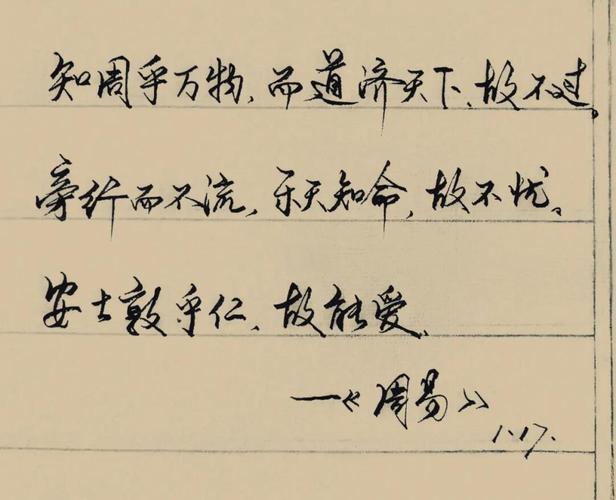 知周乎万物，而道济天下，故不过。
旁行而不流，乐天知命，故不忧。
安土敦乎仁，故能爱。
—《周易》
1.17.